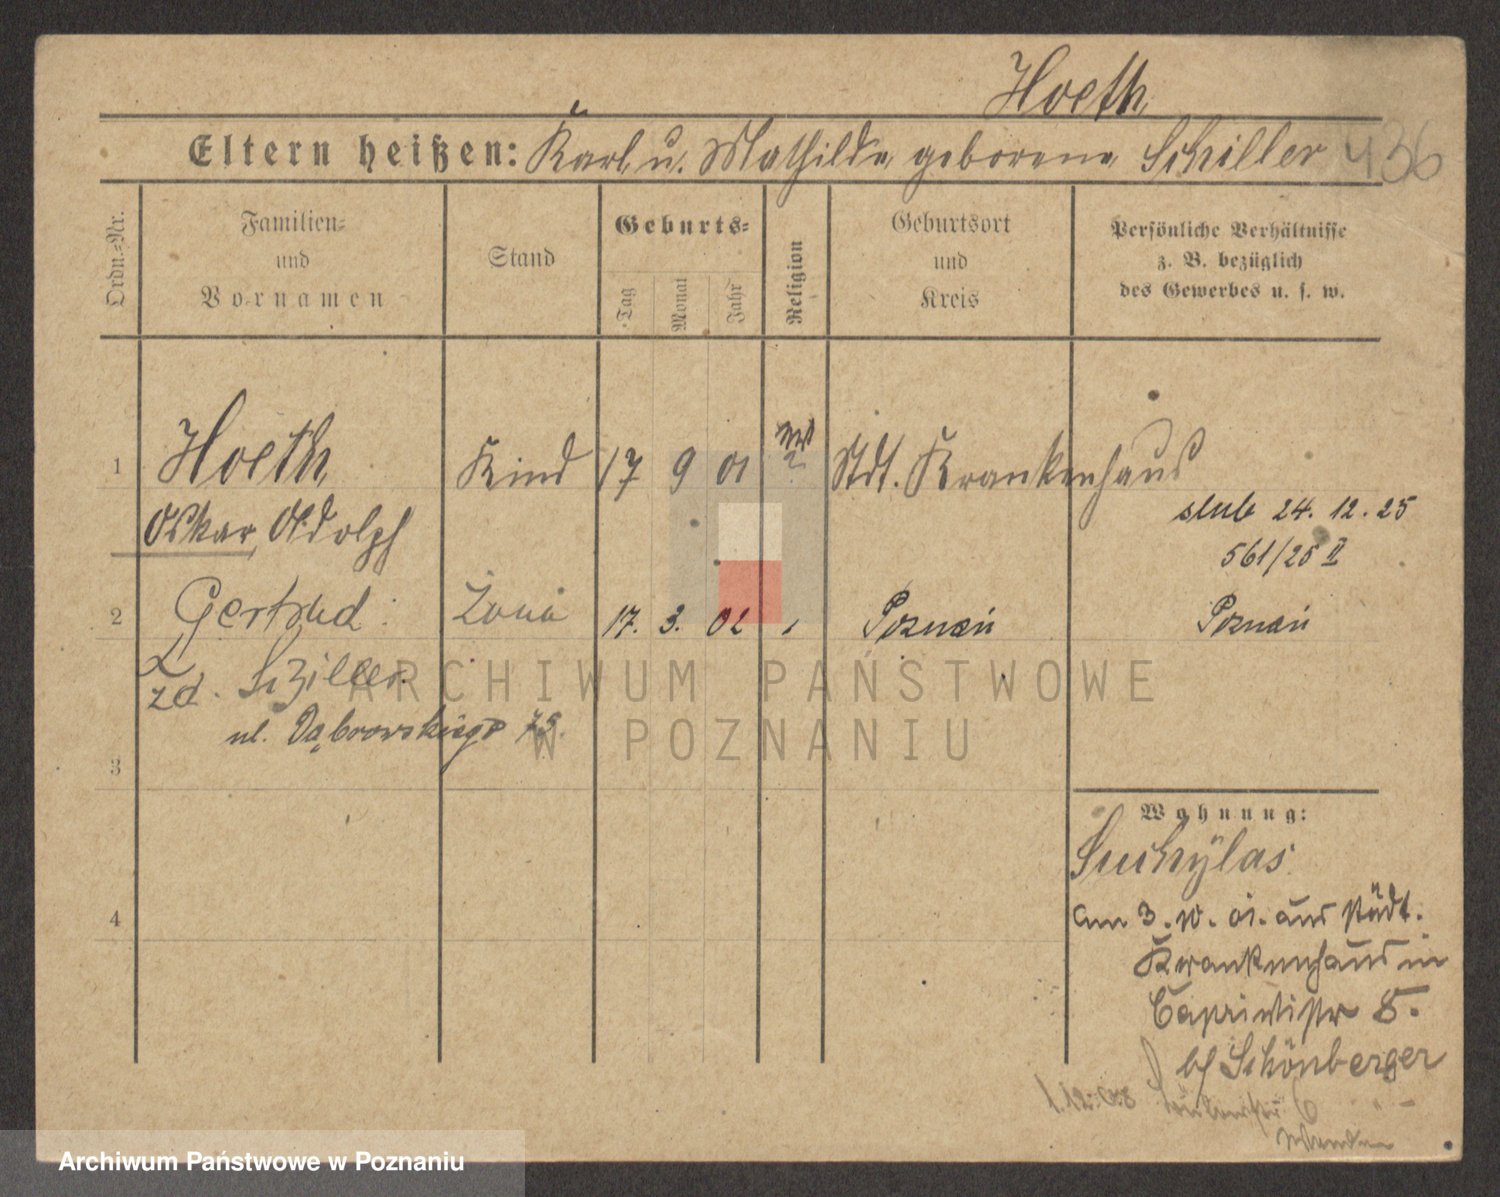 Hoeth
Eltern heißen: Karl u. Mathilde geborene Schiller 436
Ordn.-Nr.
Familien- und Vornamen
Stand
Geburts-
Tag
Monat
Jahr
Religion
Geburtsort und Kreis
Persönliche Verhältnisse z. B. bezüglich des Gewerbes u. s. w.
1 Hoeth Kind 17 9 01 ? Stdt. Krankenhaus
Oskar, Adolph
slub 24. 12. 25
561/25 II
2 Gertrud Żona 17. 3. 02 Poznań Poznań
zd. Schiller
ul. Dąbrowskiego 75.
3
4
Wohnung:
Suchylas
am 3. 10. 01. aus städt.
Krankenhaus in
Caprivistr 5.
bf Schönberger
1.12.08 6
ARCHIWUM PAŃSTWOWE
W POZNANIU
Archiwum Państwowe w Poznaniu